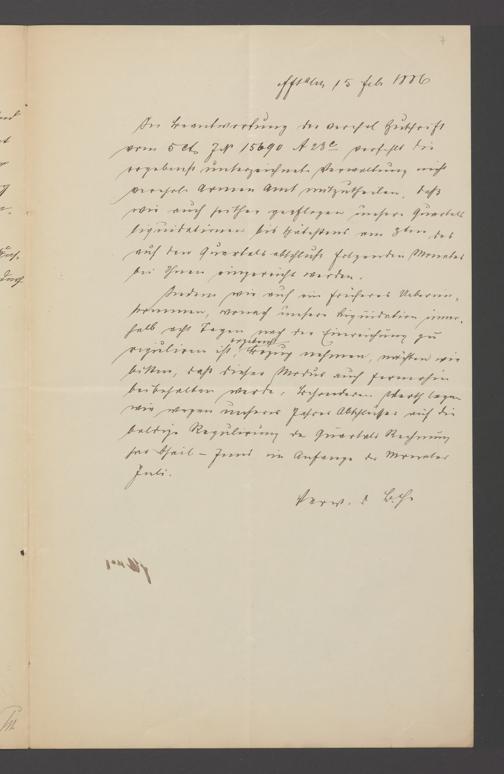 7
15 Feb 1886
In Beantwortung der verehrl Zuschrift
vom 5 ct. J.N 15690 A 23c verfehlt die
ergebenst unterzeichnete Verwaltung nicht
verehrl. Armen Amt mitzutheilen, daß
wie auch seither gepflogen unsere Quartals
liquidationen bis spätestens am 8ten des
auf den Quartalsabschluß folgenden Monates
bei Ihnen eingereicht werden.
Indem wir auf ein früheres Ueberein-
kommen, wonach unsere Liquidation inner-
halb acht Tagen nach der Einreichung zu
reguliren ist, ergebenst Bezug nehmen, möchten wir
bitten, daß dieser Modus auch fernerhin
beibehalten werde, besonderen Werth legen
wir wegen unseres Jahres Abschlusses auf die
baldige Regulirung der Quartals Rechnung
per April - Juni im Anfange des Monates
Juli.
Verw. d